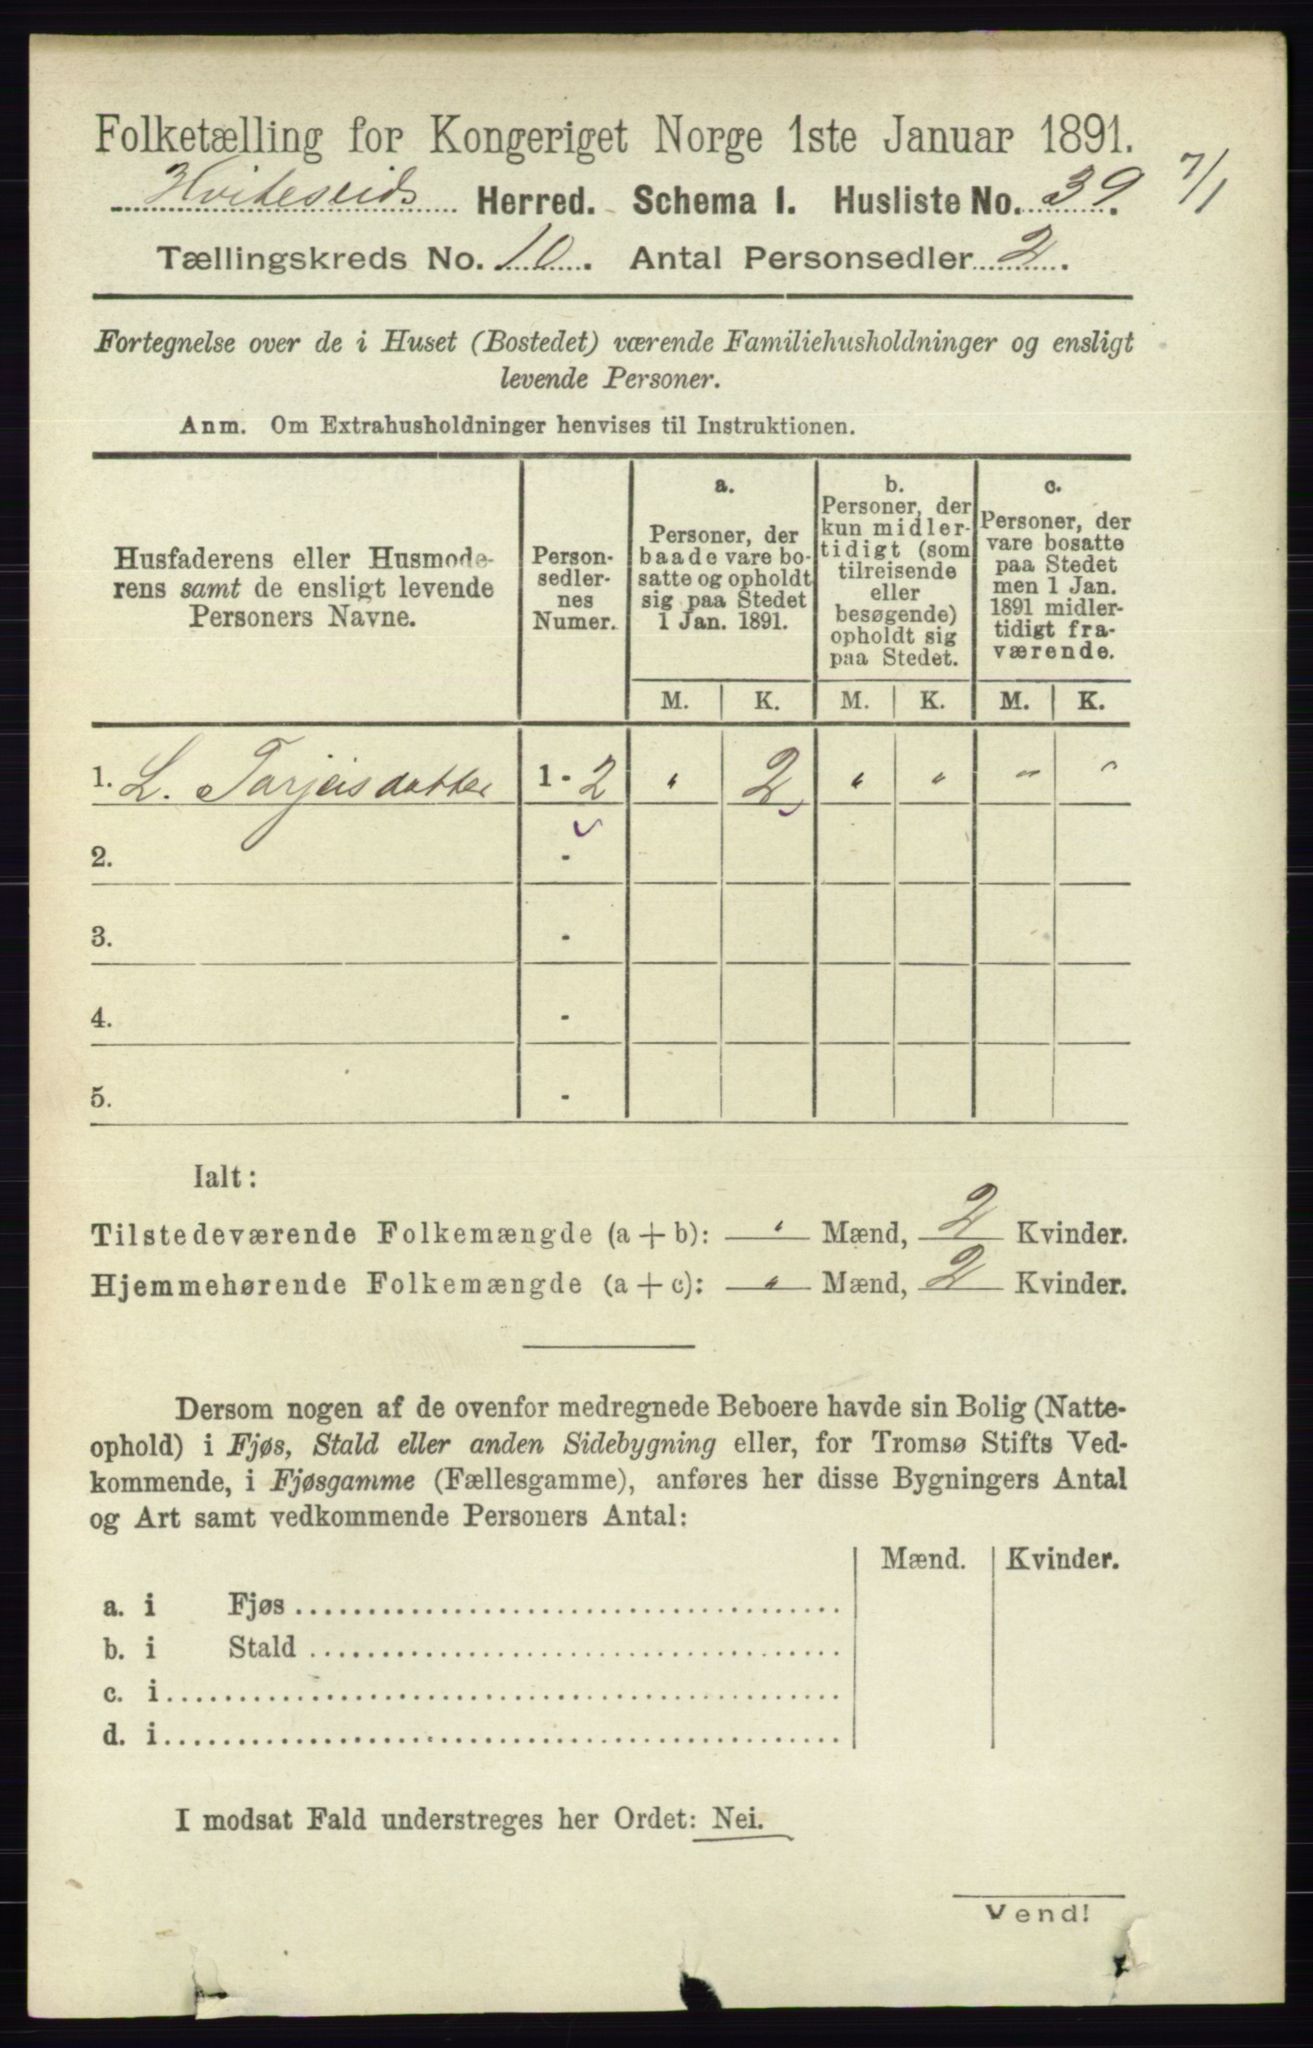 Folketælling for Kongeriget Norge 1ste Januar 1891.
Hviteseids Herred. Schema I. Husliste No. 39. 7/1
Tællingskreds No. 10. Antal Personsedler 2.
Fortegnelse over de i Huset (Bostedet) værende Familiehusholdninger og ensligt
levende Personer.
Anm. Om Extrahusholdninger henvises til Instruktionen.
Husfaderens eller Husmode-
rens samt de ensligt levende
Personers Navne.
Person-
sedler-
nes
Numer.
a.
Personer, der
baade vare bo-
satte og opholdt
sig paa Stedet
1 Jan. 1891.
b.
Personer, der
kun midler-
tidigt (som
tilreisende
eller
besøgende)
opholdt sig
paa Stedet.
c.
Personer, der
vare bosatte
paa Stedet
men 1 Jan.
1891 midler-
tidigt fra-
værende.
M. K. M. K. M. K.
1. L. Tarjeisdatter 1 - 2 " 2 " " " "
2. -
3. -
4. -
5. -
Ialt:
Tilstedeværende Folkemængde (a + b): " Mænd, 2 Kvinder.
Hjemmehørende Folkemængde (a + c): " Mænd, 2 Kvinder.
Dersom nogen af de ovenfor medregnede Beboere havde sin Bolig (Natte-
ophold) i Fjøs, Stald eller anden Sidebygning eller, for Tromsø Stifts Ved-
kommende, i Fjøsgamme (Fællesgamme), anføres her disse Bygningers Antal
og Art samt vedkommende Personers Antal:
Mænd. Kvinder.
a. i Fjøs
b. i Stald
c. i
d. i
I modsat Fald understreges her Ordet: Nei.
Vend!